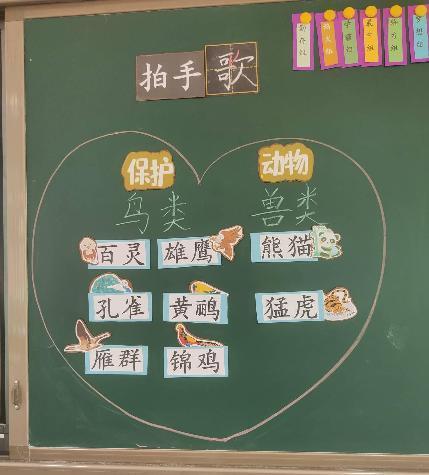 拍手歌
保护 动物
鸟类 兽类
百灵 雄鹰 熊猫
孔雀 黄鹂 猛虎
雁群 锦鸡